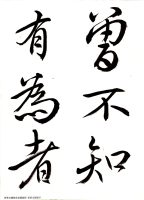 曾不知
有為者